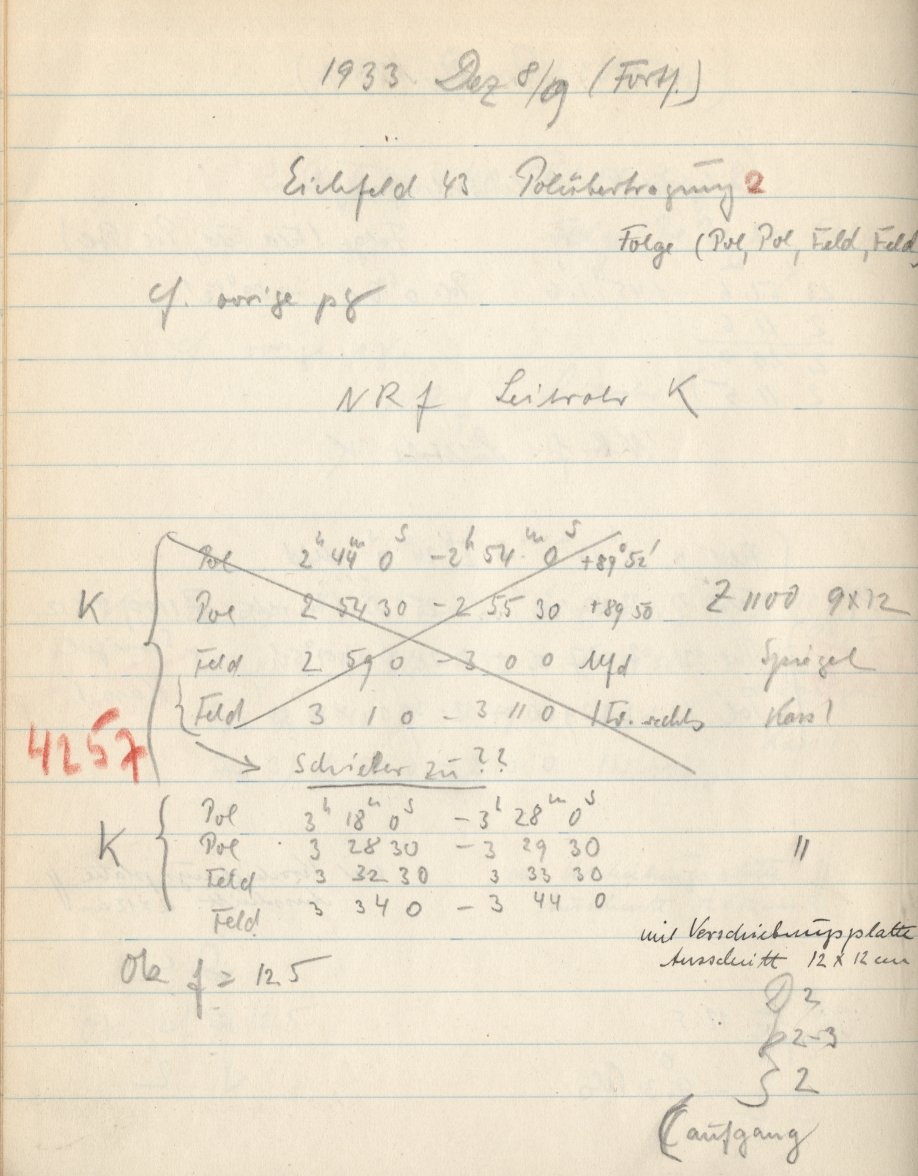 1933 Dez 8/9 (Forts.)
Eichfeld 43 Polübertragung 2
Folge (Pol, Pol, Feld, Feld)
cf. vorige pg
NR f Leitrohr K
Pol 2ʰ 44ᵐ 0ˢ - 2ʰ 54ᵐ 0ˢ +89°52'
K Pol 2 54 30 - 2 55 30 +89 50 Z 1100 9x12
Feld 2 59 0 - 3 0 0 Spiegel
Feld 3 1 0 - 3 11 0 rechts Kass
4257
→ Schieber zu ??
Pol 3ʰ 18ᵐ 0ˢ - 3ʰ 28ᵐ 0ˢ
K Pol 3 28 30 - 3 29 30 "
Feld 3 32 30 3 33 30
Feld 3 34 0 - 3 44 0
mit Verschiebungsplatte
Ausschnitt 12 x 12 cm
Ok f = 125
D 2
2-3
S 2
(aufgang